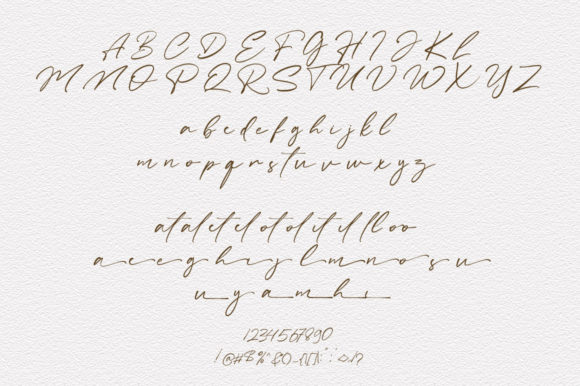 A B C D E F G H I J K L
M N O P Q R S T U V W X Y Z
a b c d e f g h i j k l
m n o p q r s t u v w x y z
at al et el ot ol it il ll oo
a c e g h i j l m n o s u
u y a m h i
1 2 3 4 5 6 7 8 9 0
! @ # $ % & ( )